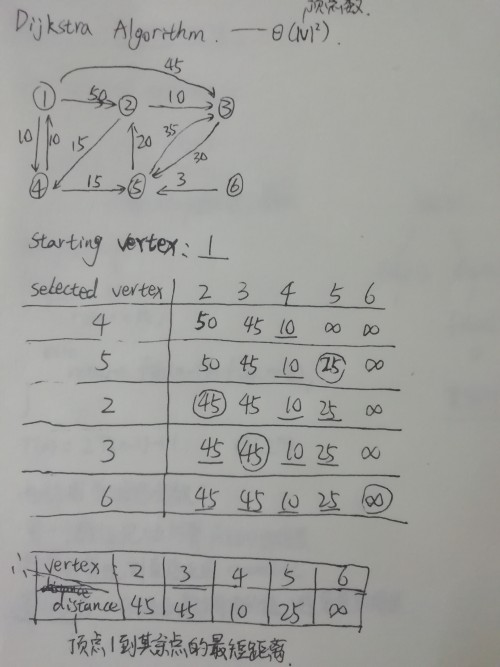 顶点数.
Dijkstra Algorithm. — θ(|V|²).
45
① 50 ② 10 ③
10 10 15 20 35 30
④ 15 ⑤ 3 ⑥
starting vertex: 1
selected vertex 2 3 4 5 6
4 50 45 10 ∞ ∞
5 50 45 10 25 ∞
2 45 45 10 25 ∞
3 45 45 10 25 ∞
6 45 45 10 25 ∞
∴ vertex 2 3 4 5 6
distance 45 45 10 25 ∞
顶点1到其余点的最短距离.